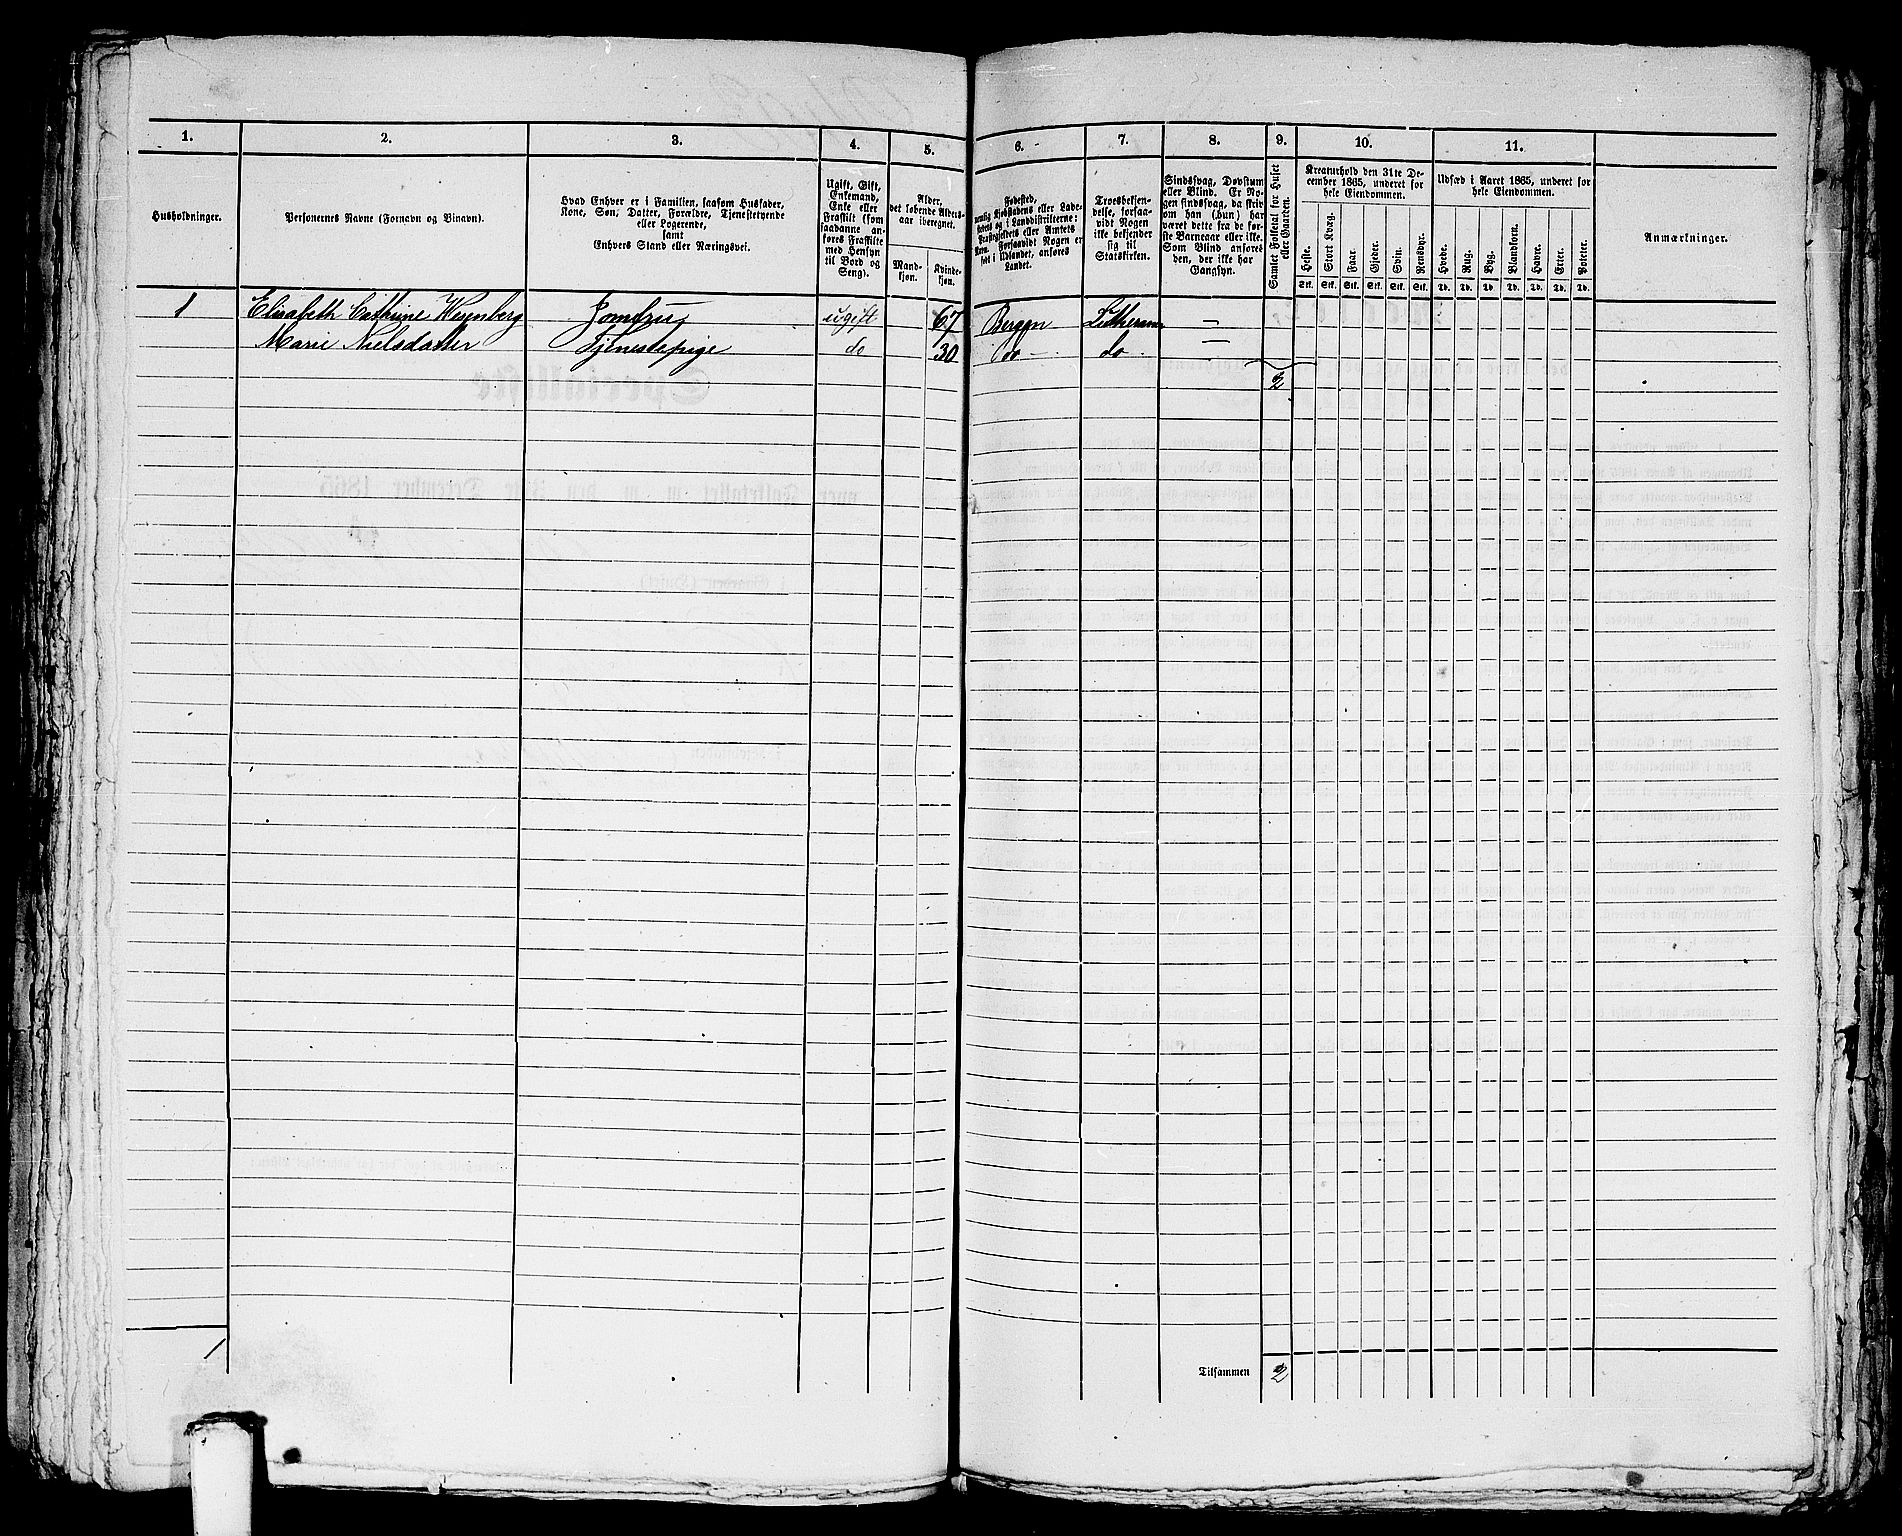 1. 2. 3. 4. 5. 6. 7. 8. 9. 10. 11.
Husholdninger.
Personernes Navne (Fornavn og Binavn).
Hvad Enhver er i Familien, saasom Husfader,
Kone, Søn, Datter, Forældre, Tjenestetyende
eller Logerende,
samt
Enhvers Stand eller Næringsvei.
Ugift, Gift,
Enkemand,
Enke eller
Fraskilt (som
saadanne an-
føres Fraskilte
med Hensyn
til Bord og
Seng).
Alder,
det løbende Alders-
aar iberegnet.
Mand-
kjøn.
Kvinde-
kjøn.
Fødested,
nemlig Kjøbstadens eller Lade-
stedets og i Landdistrikterne:
Præstegjeldets eller Amtets
Navn. Forsaavidt Nogen er
født i Udlandet, anføres
Landet.
Troesbekjen-
delse, forsaa-
vidt Nogen
ikke bekjender
sig til
Statskirken.
Sindssvag, Døvstum
eller Blind. Er No-
gen sindssvag, da skriv
om han (hun) har
været dette fra de før-
ste Barneaar eller ikke.
Som Blind anføres
den, der ikke har
Gangsyn.
Samlet Folketal for Huset
eller Gaarden.
Kreaturhold den 31te De-
cember 1865, underet for
hele Eiendommen.
Heste. Stort Kvæg. Faar. Gjeder. Svin. Rensdyr.
Stk. Stk. Stk. Stk. Stk. Stk.
Udsæd i Aaret 1865, underet for
hele Eiendommen.
Hvede. Rug. Byg. Blandkorn. Havre. Erter. Poteter.
Td. Td. Td. Td. Td. Td. Td.
Anmærkninger.
1 Elisabeth Cathrine Jomfru ugift 67 Bergen Lutheran —
Marie Nielsdatter Tjenestepige do 30 do — do —
2
1
Tilsammen 2